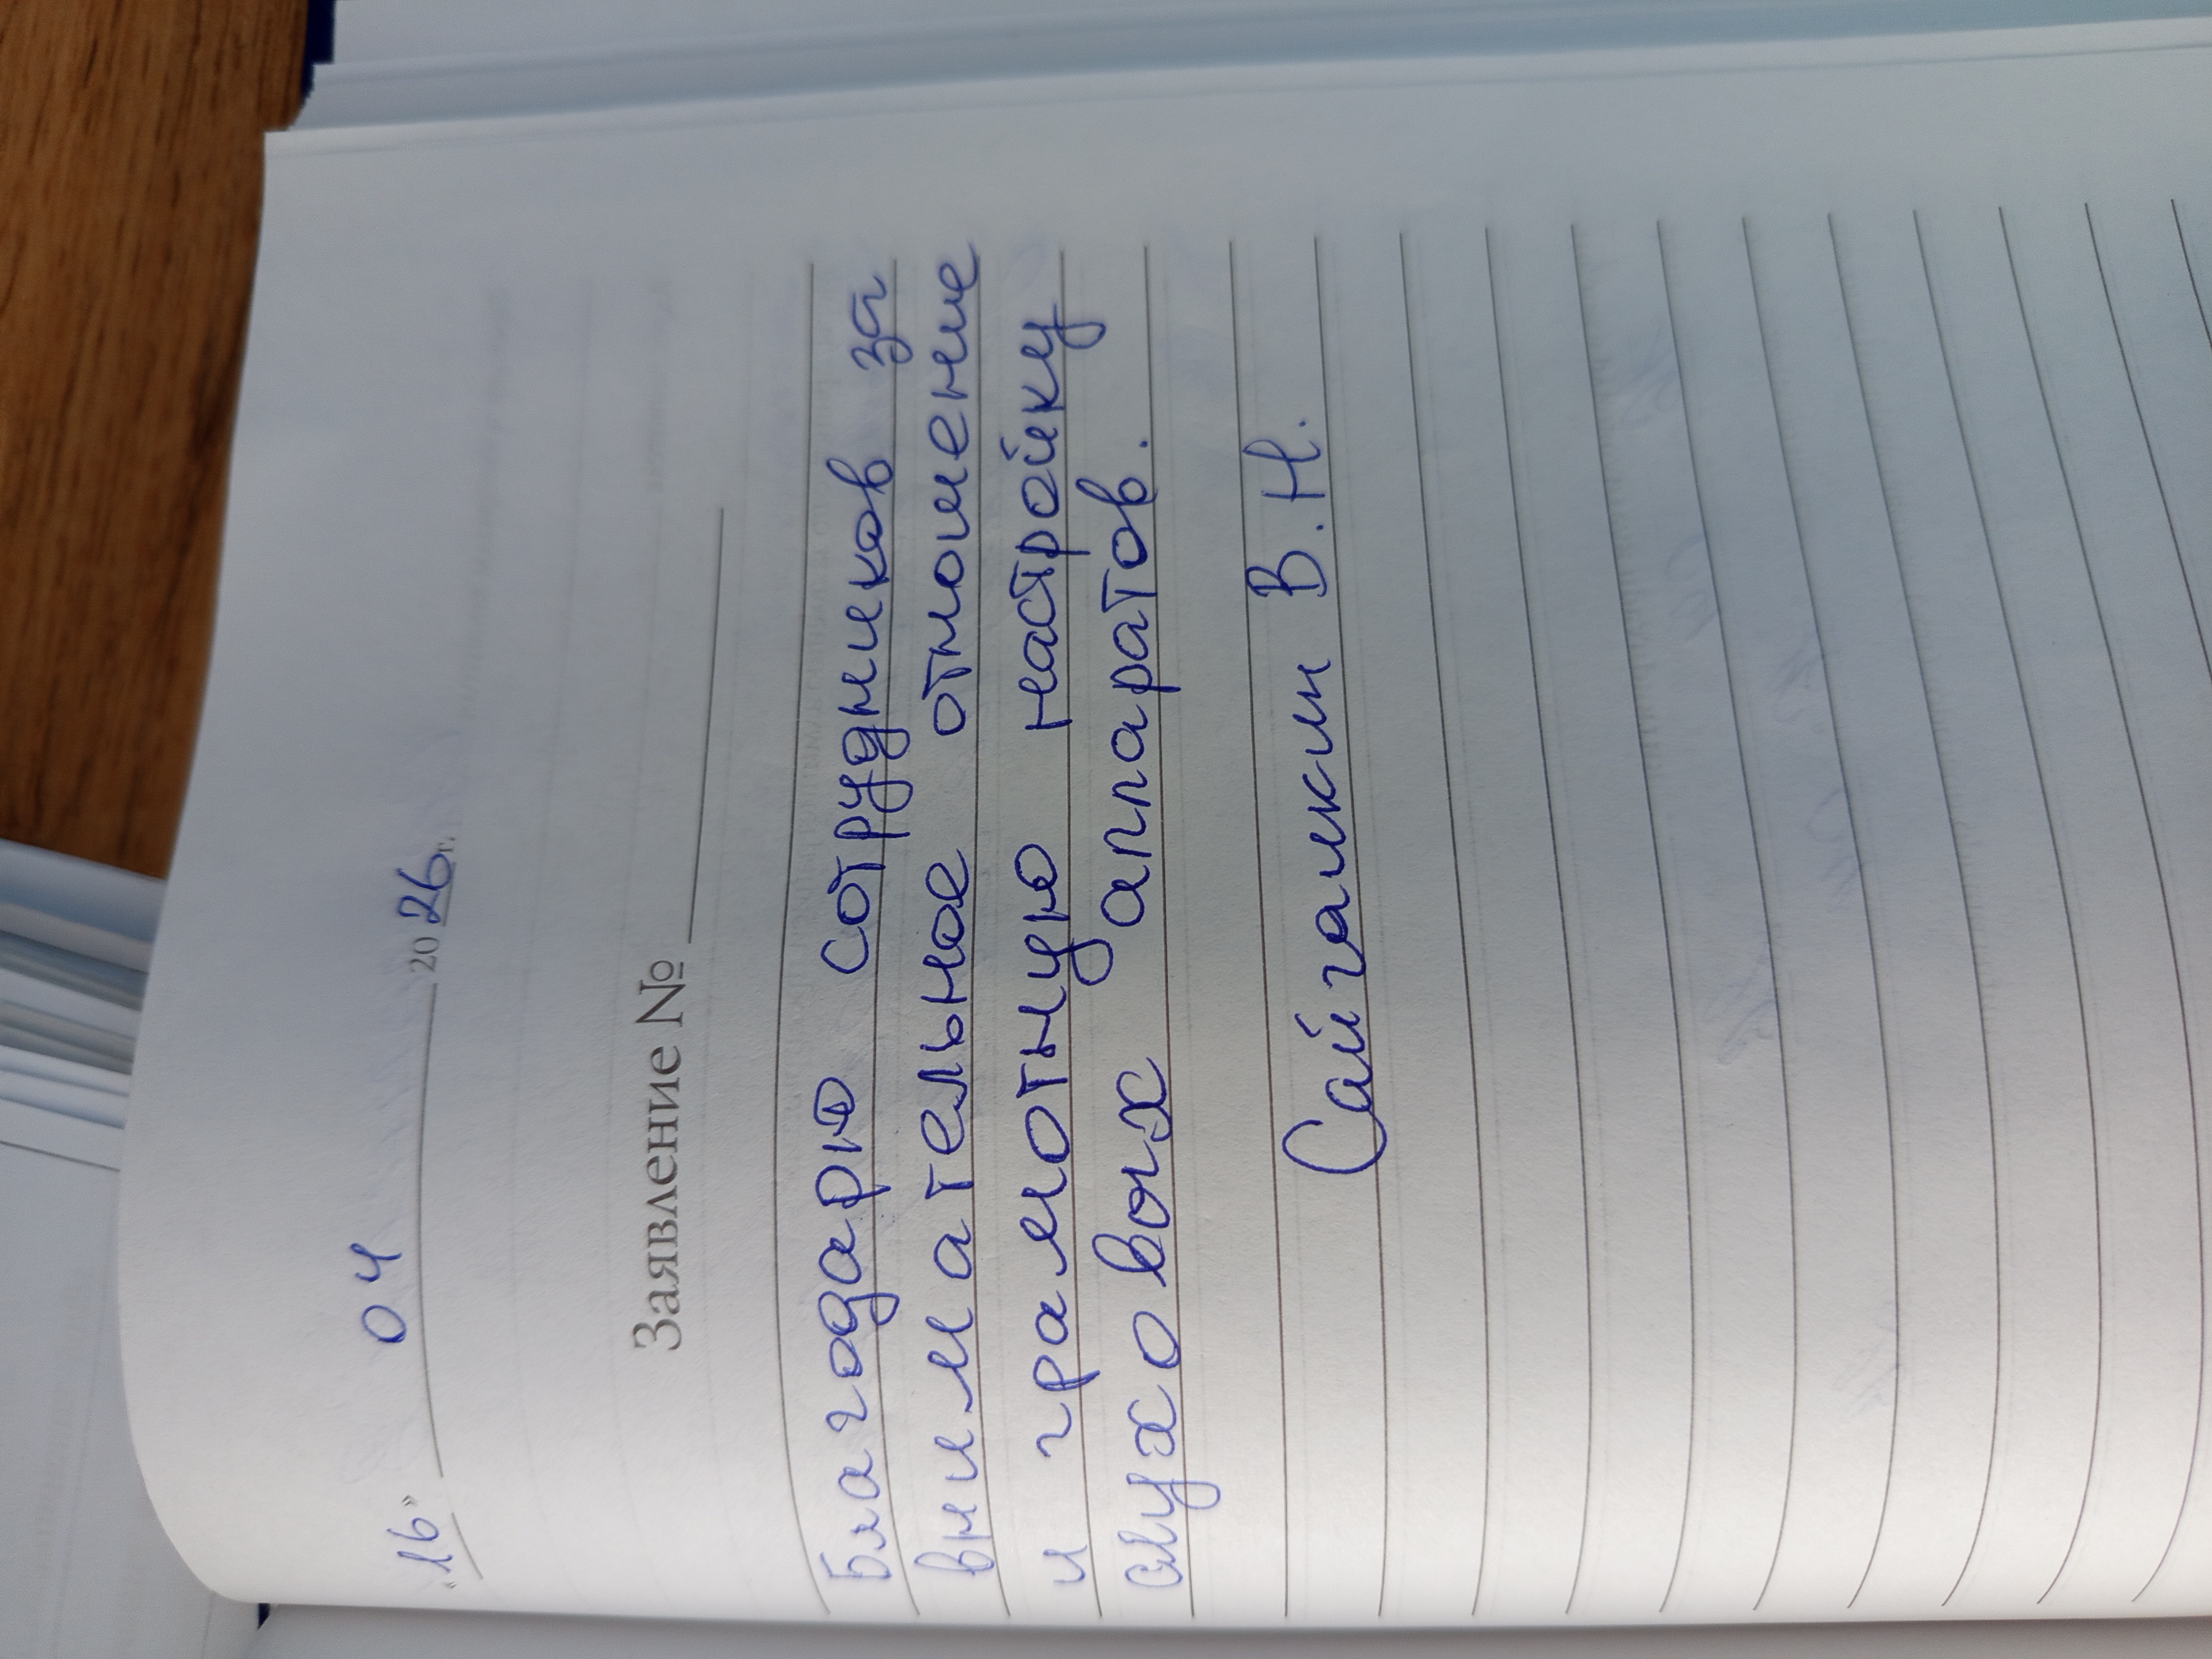 «16» 04 2026 г.
Заявление №
Благодарю сотрудников за
внимательное отношение
и грамотную настройку
слуховых аппаратов.
Сайганкин В.Н.